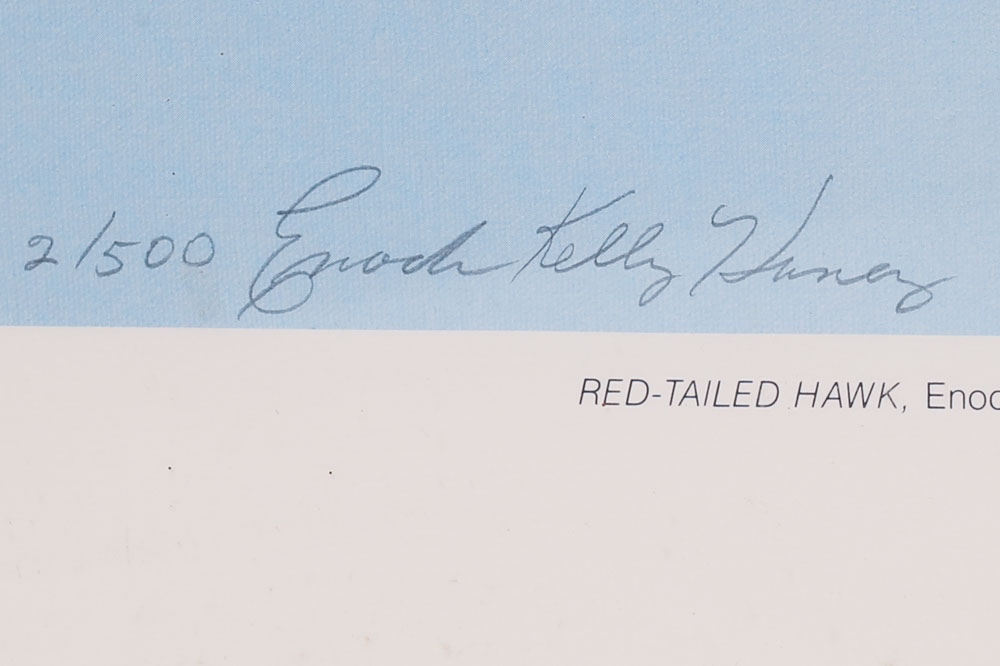 2/500 Enoch Kelly Haney
RED-TAILED HAWK, Enoc